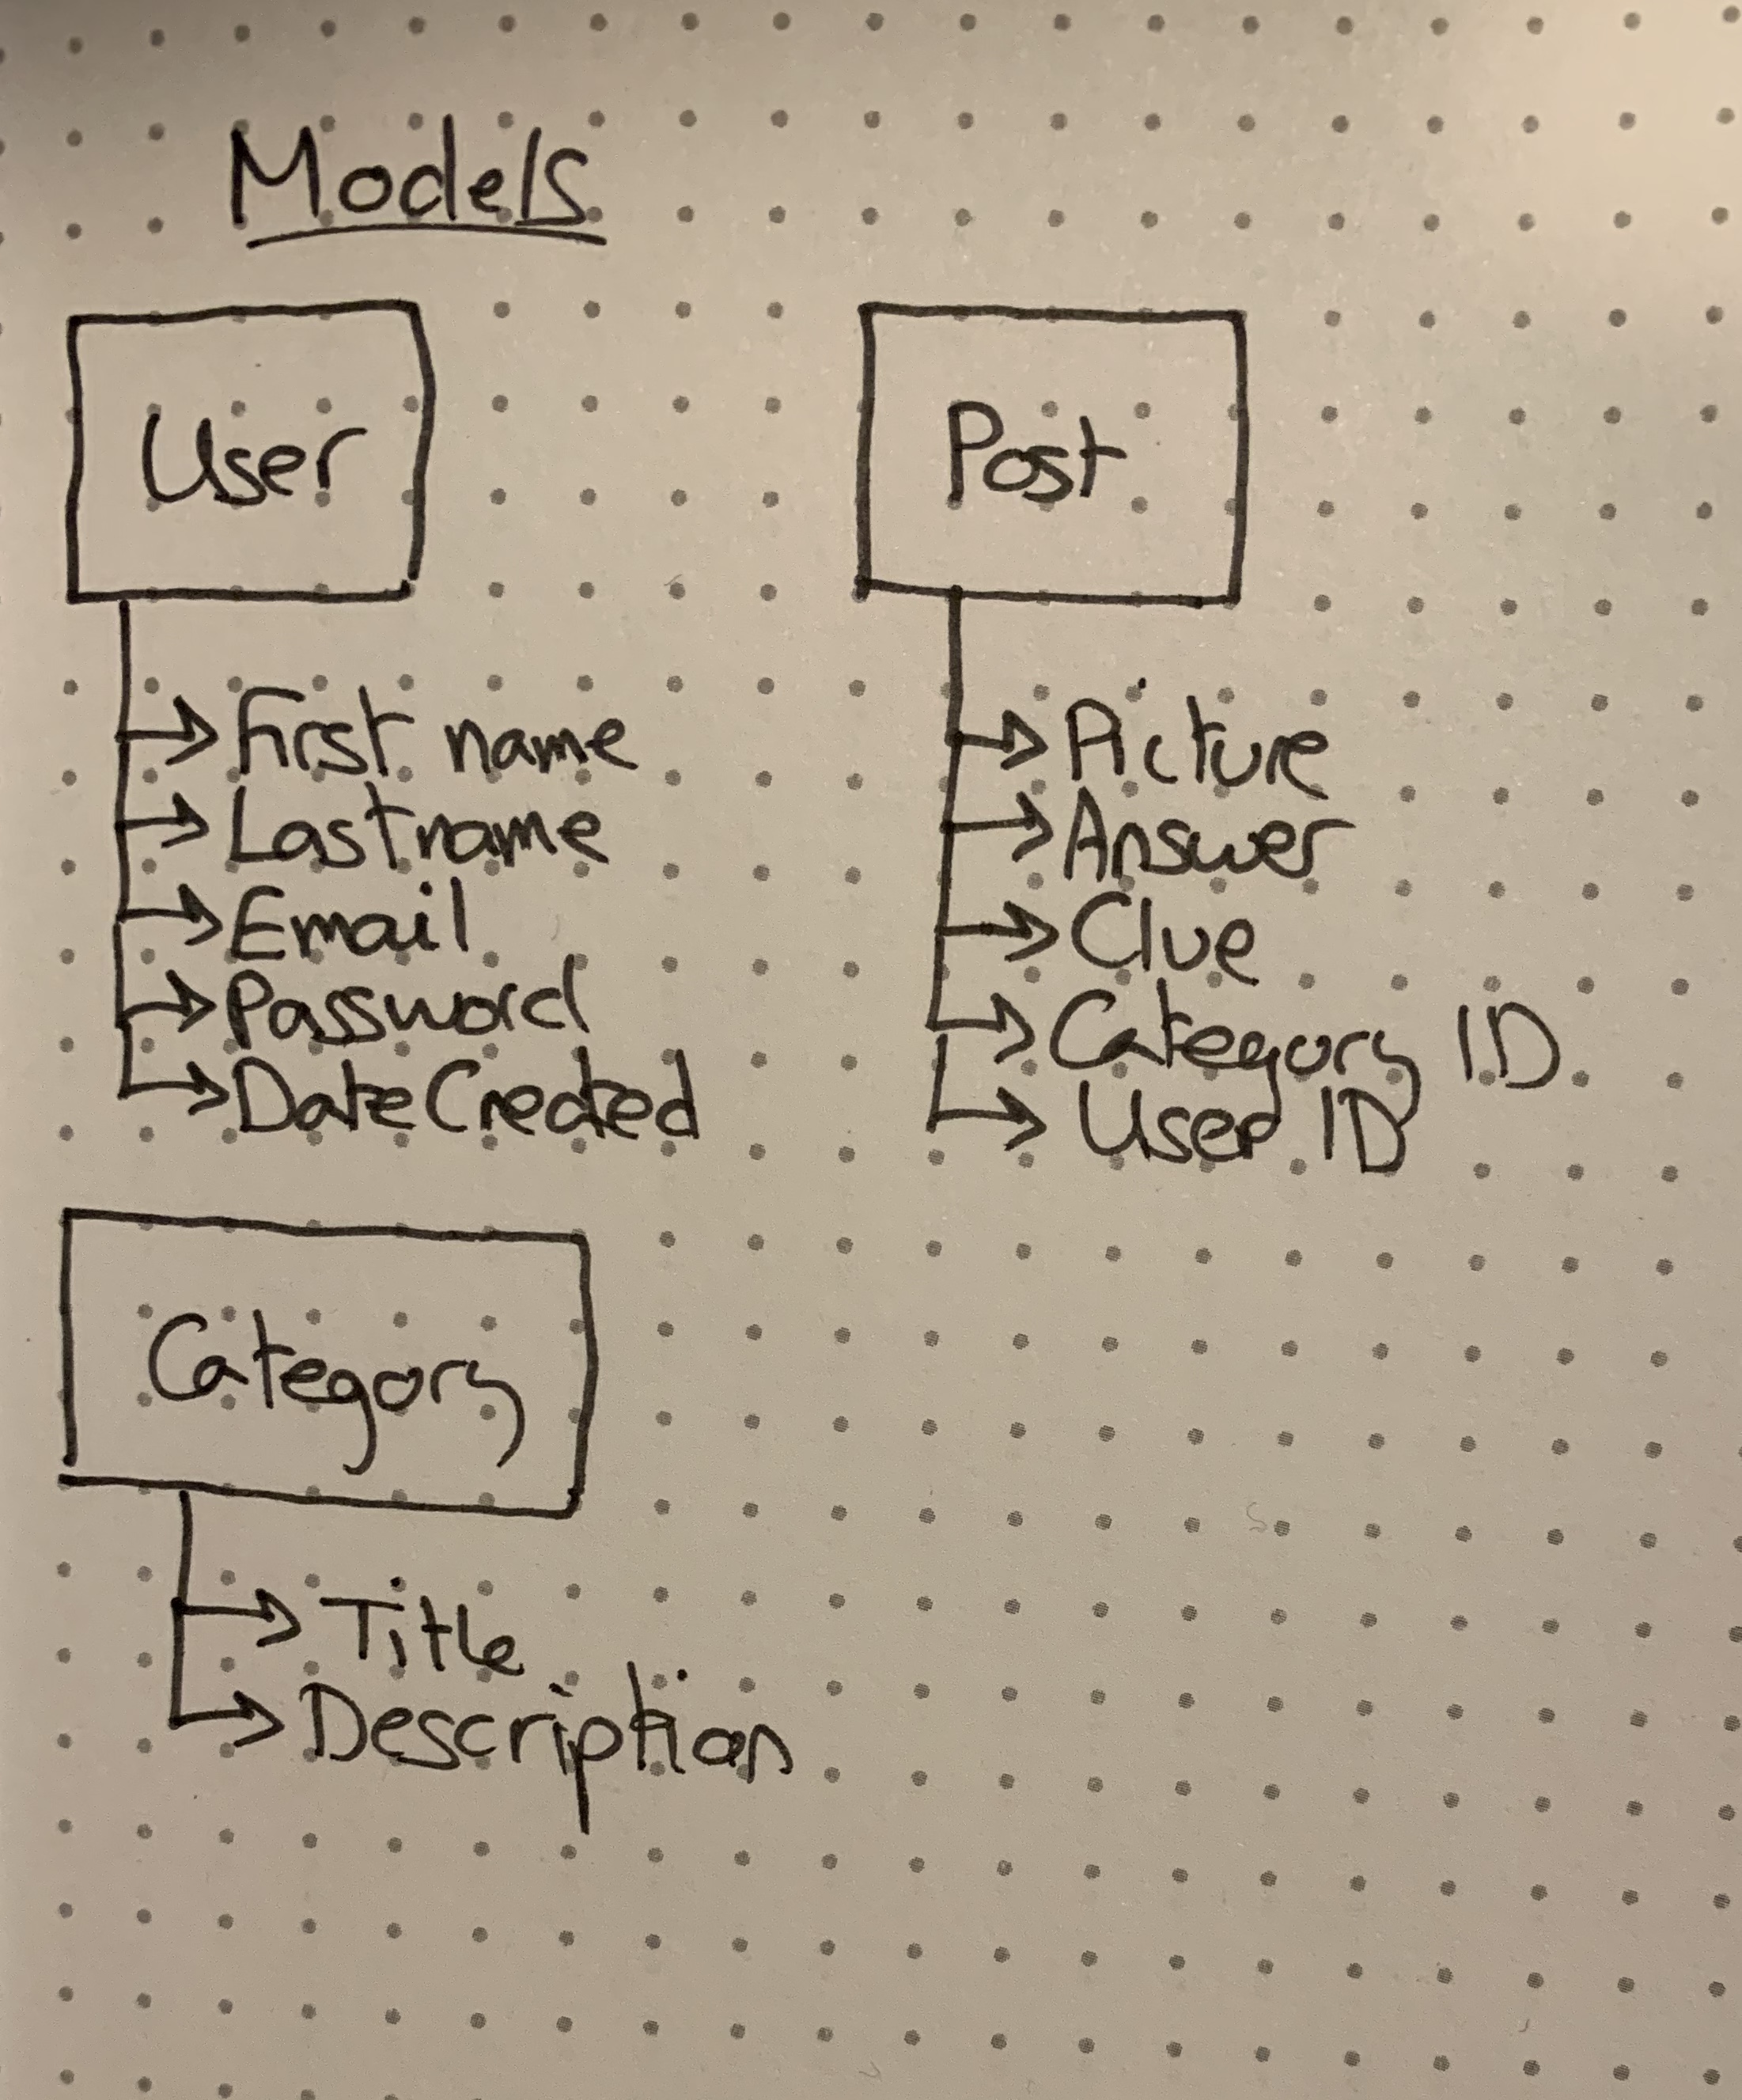 Models
User
First name
Last name
Email
Password
Date Created
Post
Picture
Answer
Clue
Category ID
User ID
Category
Title
Description